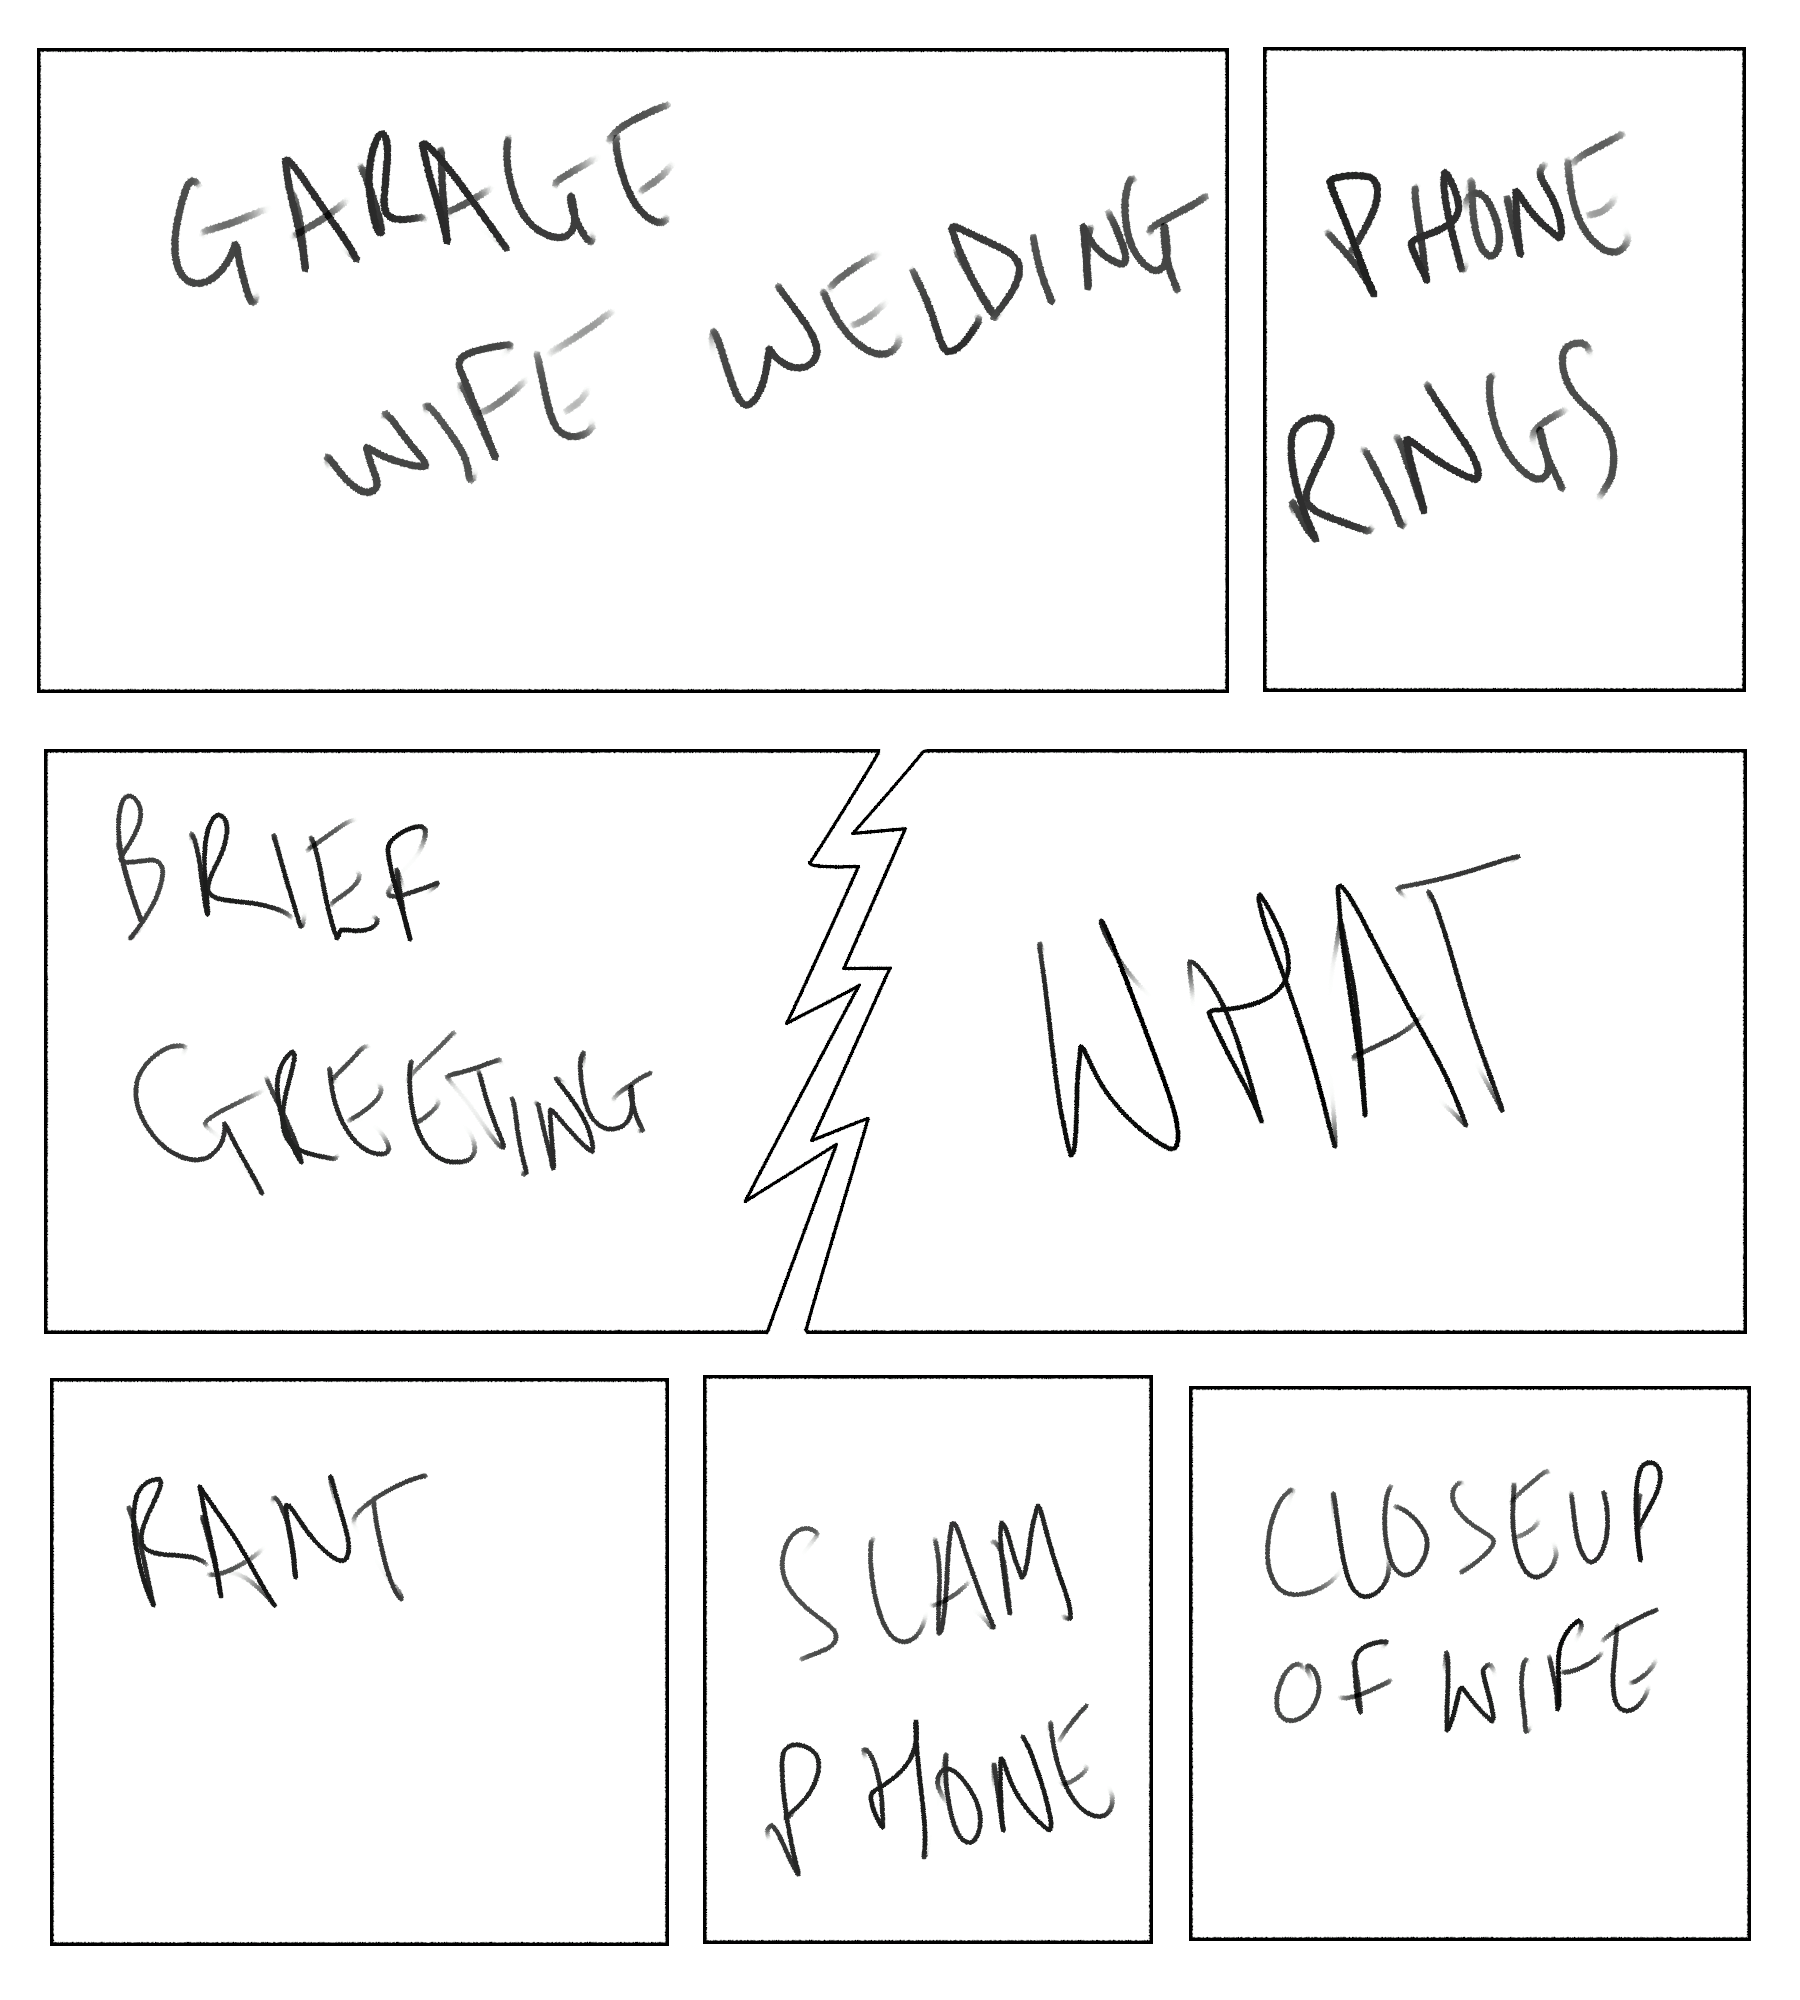 GARAGE
WIFE WELDING
PHONE
RINGS
BRIEF
GREETING
WHAT
RANT
SLAM
PHONE
CLOSEUP
OF WIFE